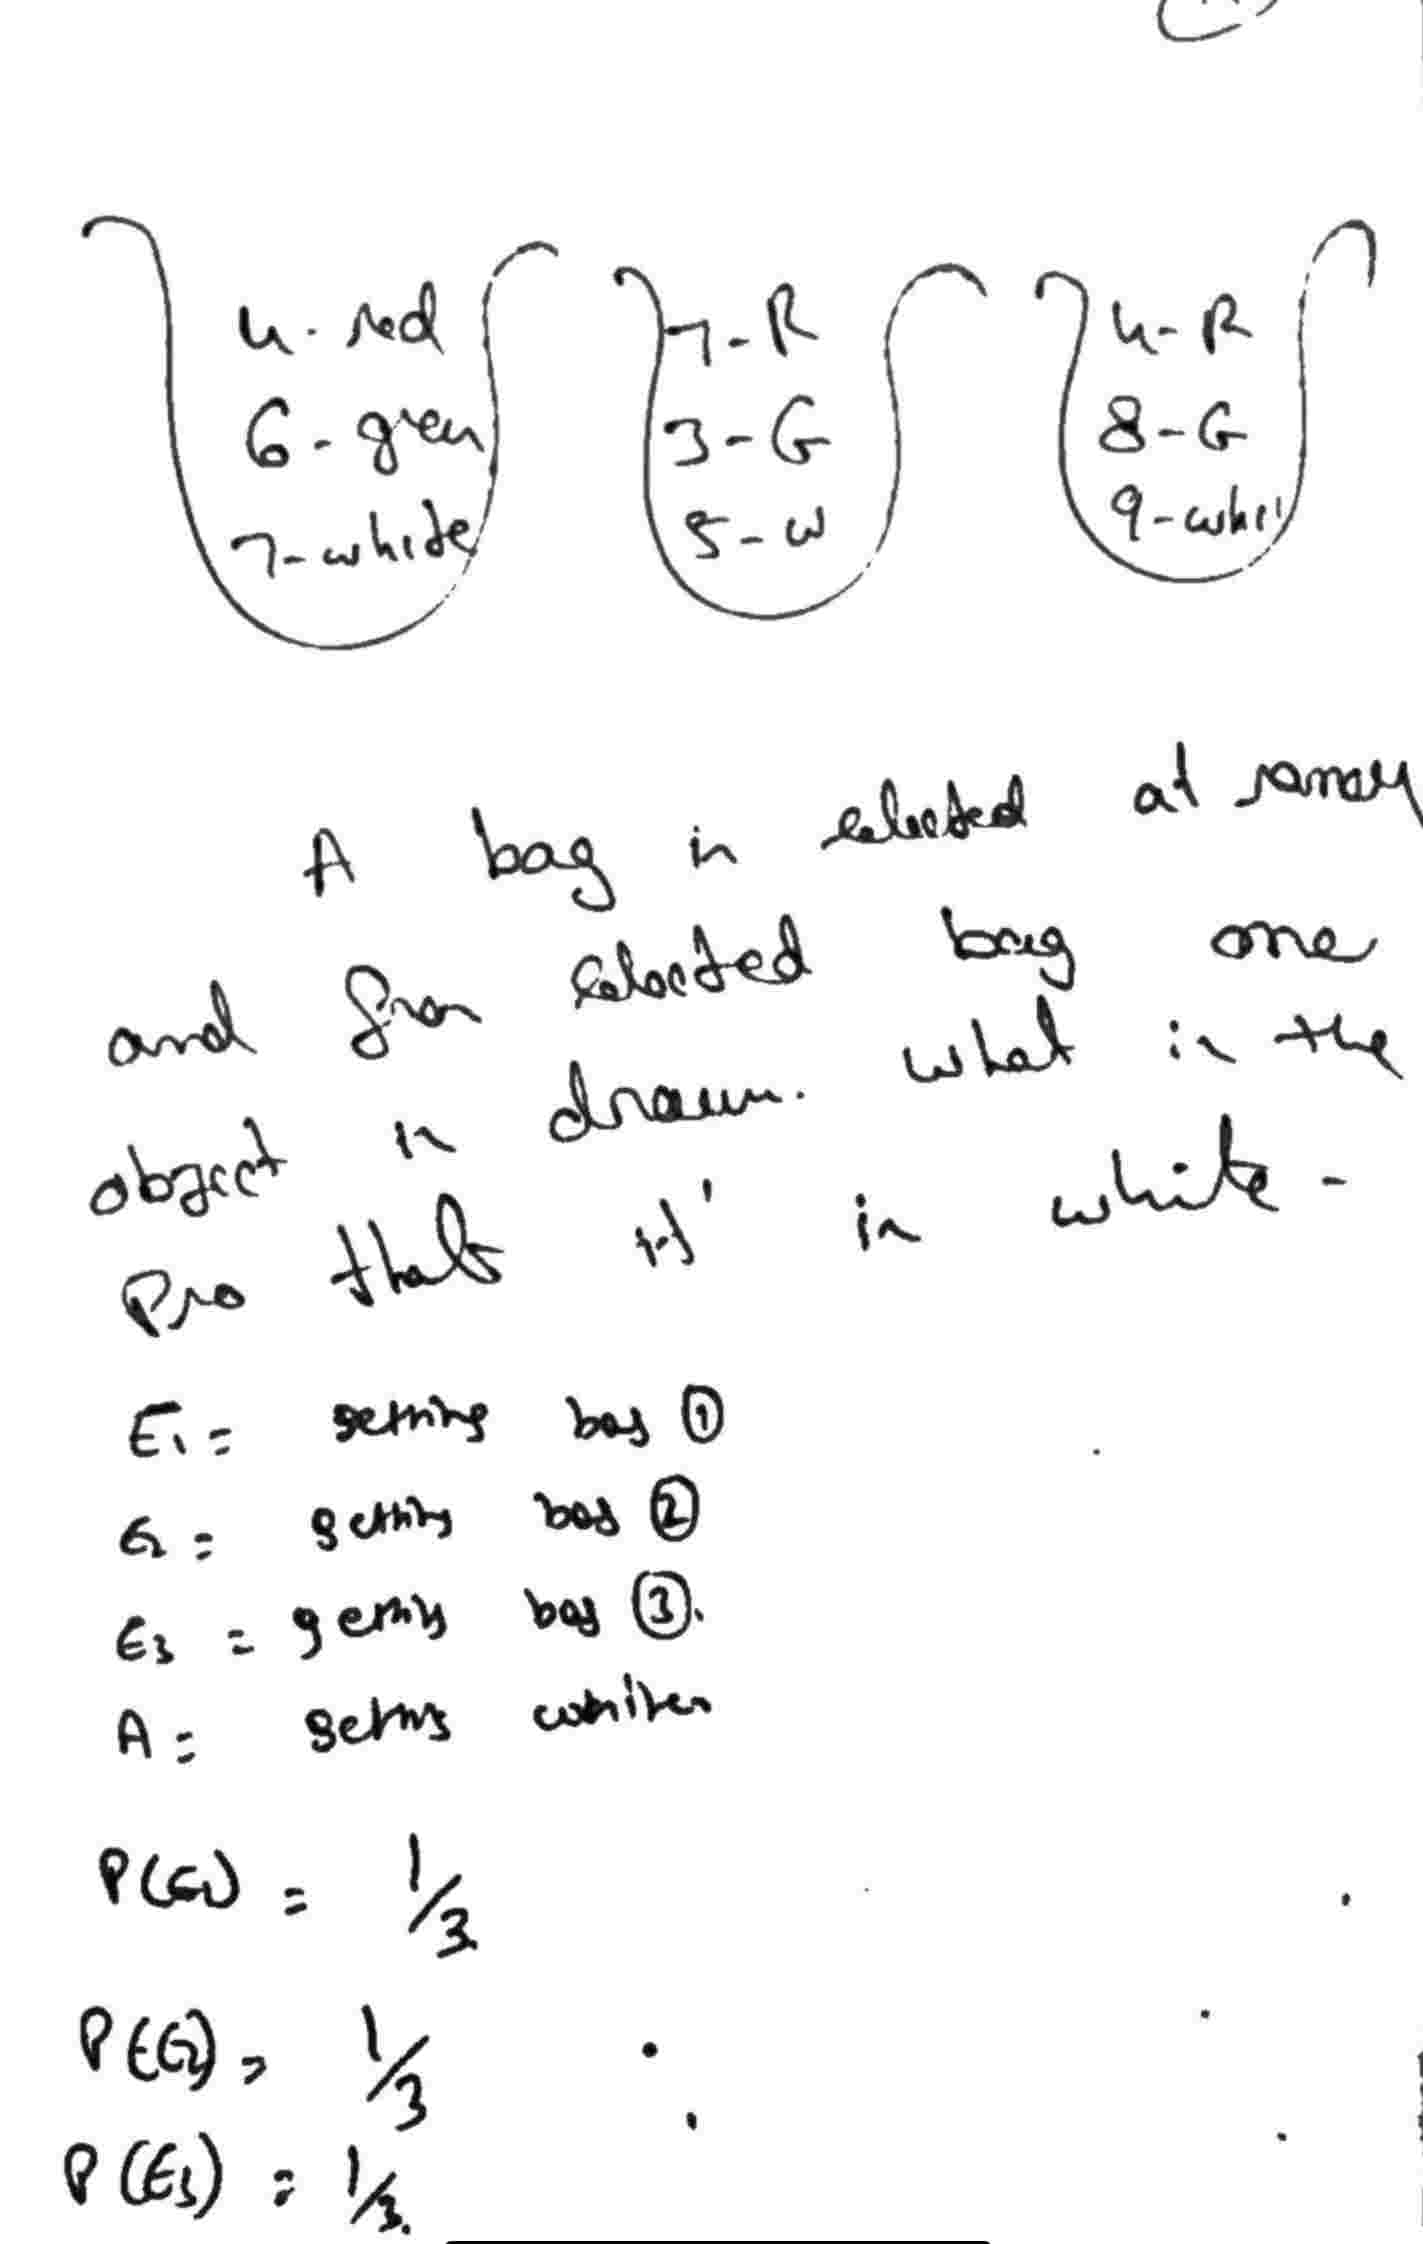 4 - red
6 - green
7 - white
7 - R
3 - G
5 - W
4 - R
8 - G
9 - whi
A bag is selected at
and from selected bag one
object is drawn. what is the
Pro that it is white -
E1 = getting bag ①
E2 = getting bag ②
E3 = getting bag ③.
A = getting white
P(E1) = 1/3
P(E2) = 1/3
P(E3) = 1/3.